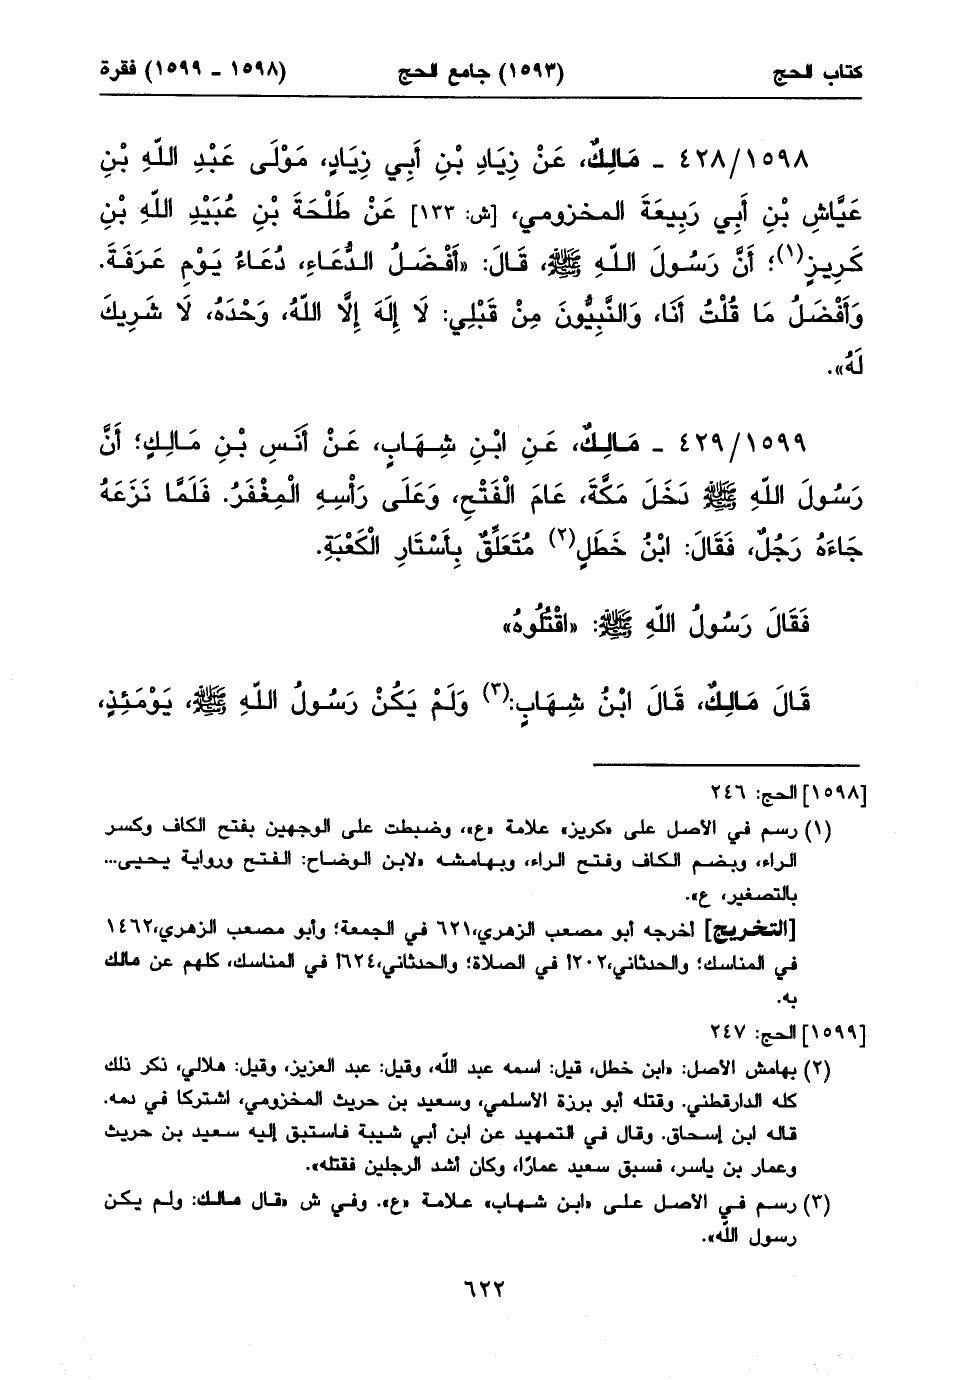 كتاب الحج (١٥٩٣) جامع الحج (١٥٩٨ - ١٥٩٩) فقرة
٤٢٨/١٥٩٨ - مَالِكٌ، عَنْ زِيَادِ بْنِ أَبِي زِيَادٍ، مَوْلَى عَبْدِ اللّٰهِ بْنِ
عَيَّاشِ بْنِ أَبِي رَبِيعَةَ المخزومي، [ش: ١٣٣] عَنْ طَلْحَةَ بْنِ عُبَيْدِ اللّٰهِ بْنِ
كَرِيزٍ(١)؛ أَنَّ رَسُولَ اللّٰهِ ﷺ، قَالَ: «أَفْضَلُ الدُّعَاءِ، دُعَاءُ يَوْمِ عَرَفَةَ.
وَأَفْضَلُ مَا قُلْتُ أَنَا، وَالنَّبِيُّونَ مِنْ قَبْلِي: لَا إِلَهَ إِلَّا اللّٰهُ، وَحْدَهُ، لَا شَرِيكَ
لَهُ».
٤٢٩/١٥٩٩ - مَالِكٌ، عَنِ ابْنِ شِهَابٍ، عَنْ أَنَسِ بْنِ مَالِكٍ؛ أَنَّ
رَسُولَ اللّٰهِ ﷺ دَخَلَ مَكَّةَ، عَامَ الْفَتْحِ، وَعَلَى رَأْسِهِ الْمِغْفَرُ. فَلَمَّا نَزَعَهُ
جَاءَهُ رَجُلٌ، فَقَالَ: ابْنُ خَطَلٍ(٢) مُتَعَلِّقٌ بِأَسْتَارِ الْكَعْبَةِ.
فَقَالَ رَسُولُ اللّٰهِ ﷺ: «اقْتُلُوهُ»
قَالَ مَالِكٌ، قَالَ ابْنُ شِهَابٍ:(٣) وَلَمْ يَكُنْ رَسُولُ اللّٰهِ ﷺ، يَوْمَئِذٍ،
[١٥٩٨] الحج: ٢٤٦
(١) رسم في الأصل على «كريز» علامة «ع»، وضبطت على الوجهين بفتح الكاف وكسر
الراء، وبضم الكاف وفتح الراء، وبهامشه «لابن الوضاح: الفتح ورواية يحيى...
بالتصغير، ع».
[التخريج] أخرجه أبو مصعب الزهري،٦٢١ في الجمعة؛ وأبو مصعب الزهري،١٤٦٢
في المناسك؛ والحدثاني،٢٠٢أ في الصلاة؛ والحدثاني،٦٢٤أ في المناسك، كلهم عن مالك
به.
[١٥٩٩] الحج: ٢٤٧
(٢) بهامش الأصل: «ابن خطل، قيل: اسمه عبد اللّٰه، وقيل: عبد العزيز، وقيل: هلالي، ذكر ذلك
كله الدارقطني. وقتله أبو برزة الأسلمي، وسعيد بن حريث المخزومي، اشتركا في دمه.
قاله ابن إسحاق. وقال في التمهيد عن ابن أبي شيبة فاستبق إليه سعيد بن حريث
وعمار بن ياسر، فسبق سعيد عمارًا، وكان أشد الرجلين فقتله».
(٣) رسم في الأصل على «ابن شهاب» علامة «ع». وفي ش «قال مالك: ولم يكن
رسول اللّٰه».
٦٢٢